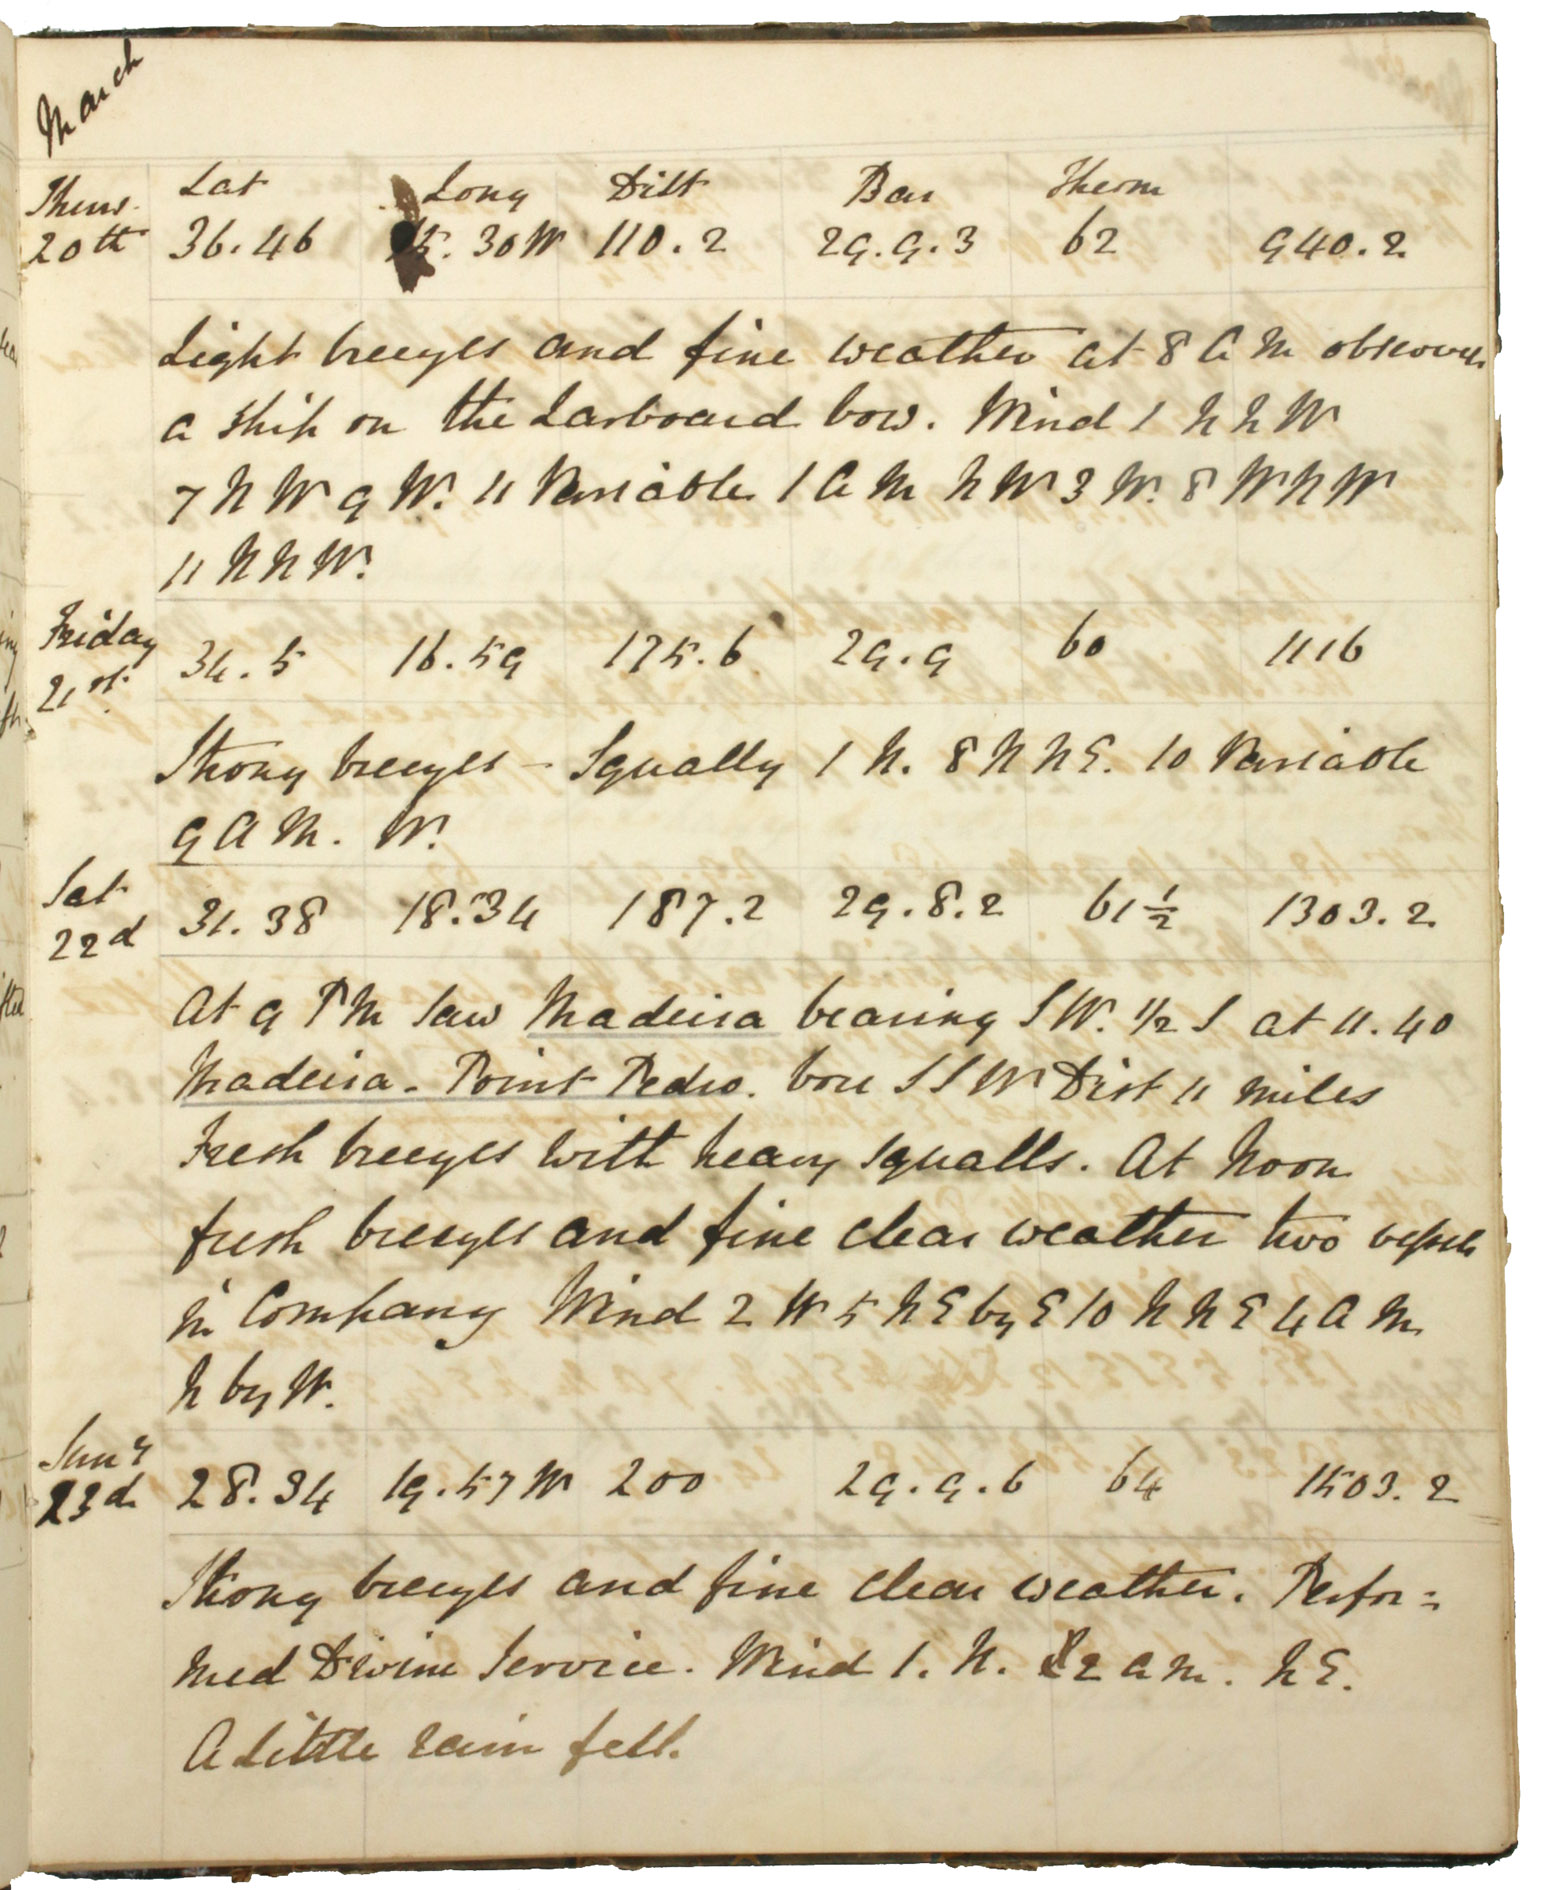 March
Lat Long Dist Bar Therm
Thurs. 20th 36.46 15.30W 110.2 29.9.3 62 940.2
Light breezes and fine weather at 8 A M observed
a Ship on the Larboard bow. Wind 1 N N W
7 N W 9 W. 11 Variable 1 A M N W 3 W. 8 W N W
11 N N W.
Friday 21st 34.5 16.59 175.6 29.9 60 1116
Strong breezes - Squally 1 N. 8 N N E. 10 Variable
9 A M. W.
Sat 22d 31.38 18.34 187.2 29.8.2 61 1/2 1303.2
At 9 P M Saw Madeira bearing S W. 1/2 S at 11.40
Madeira - Point Pedro. bore S S W Dist 11 miles
Fresh breezes with heavy squalls. At Noon
fresh breezes and fine clear weather two vessels
in Company Wind 2 W 5 N E by E 10 N N E 4 A M
N by W.
Suny 23d 28.34 19.57 W 200 29.9.6 64 1503.2
Strong breezes and fine clear weather. Perfor=
med Divine Service. Wind 1. N. 2 A M. N E.
A Little rain fell.